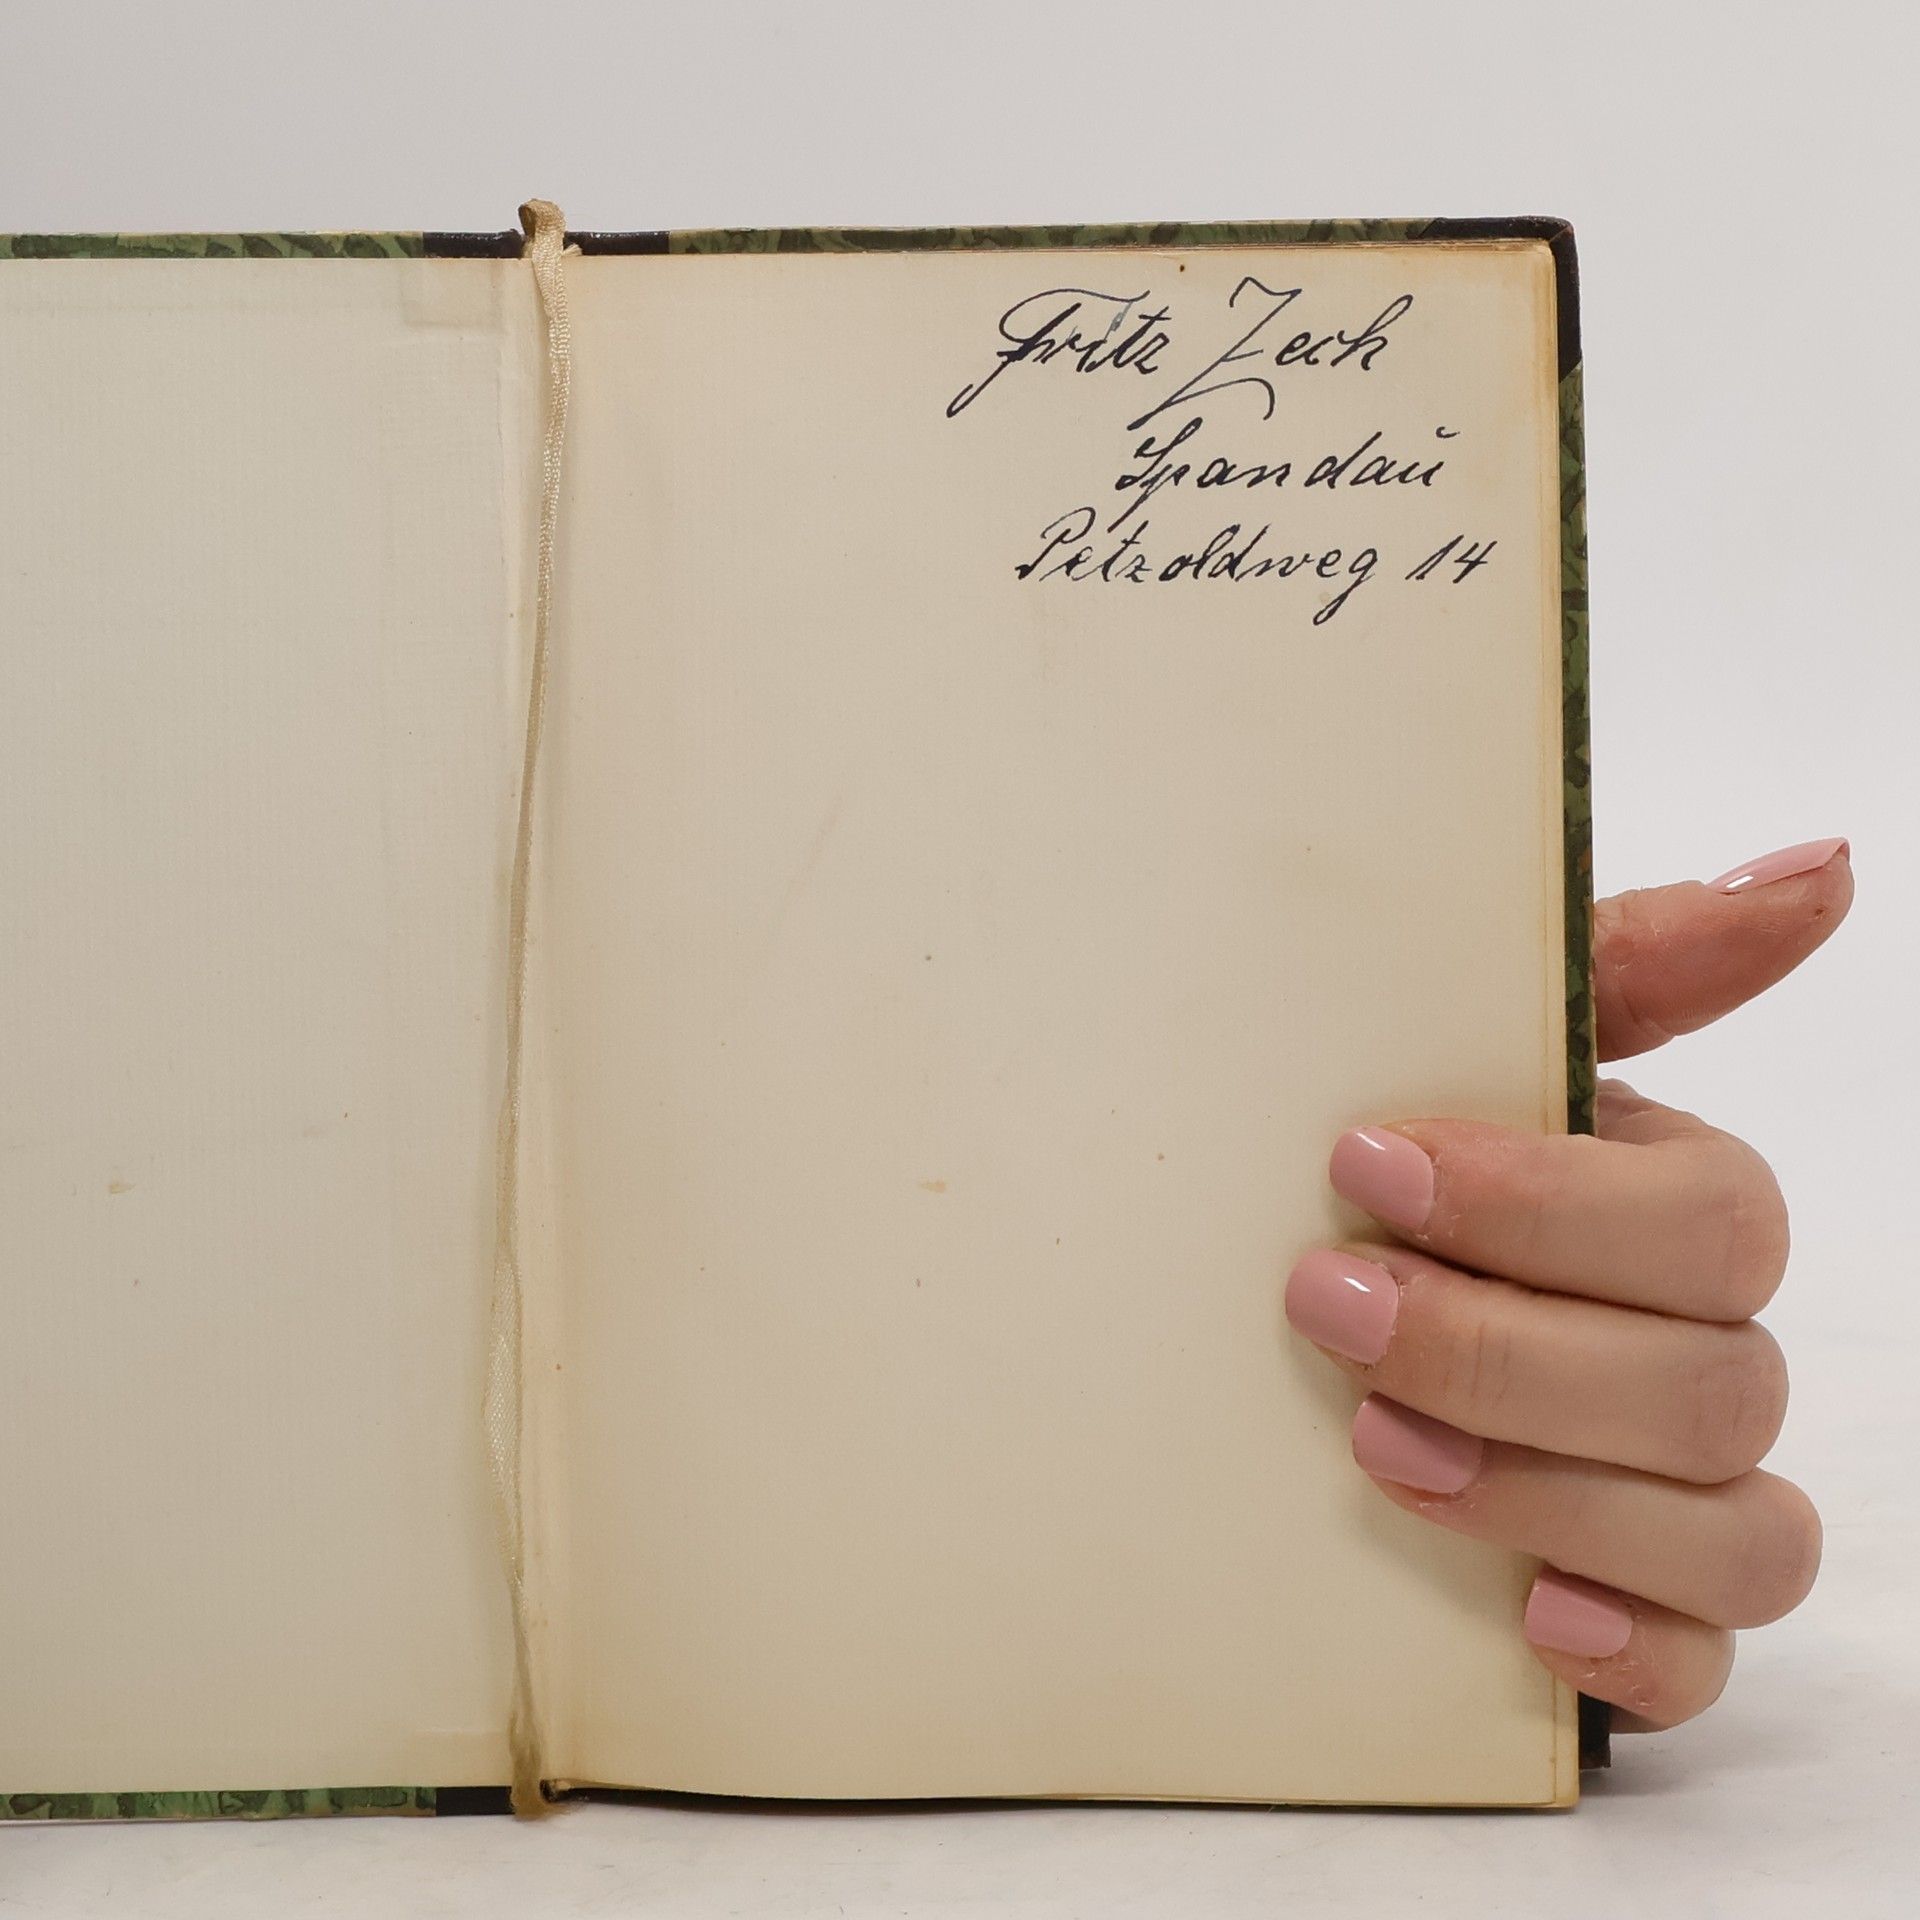 Fritz Zech
Spandau
Petzoldweg 14